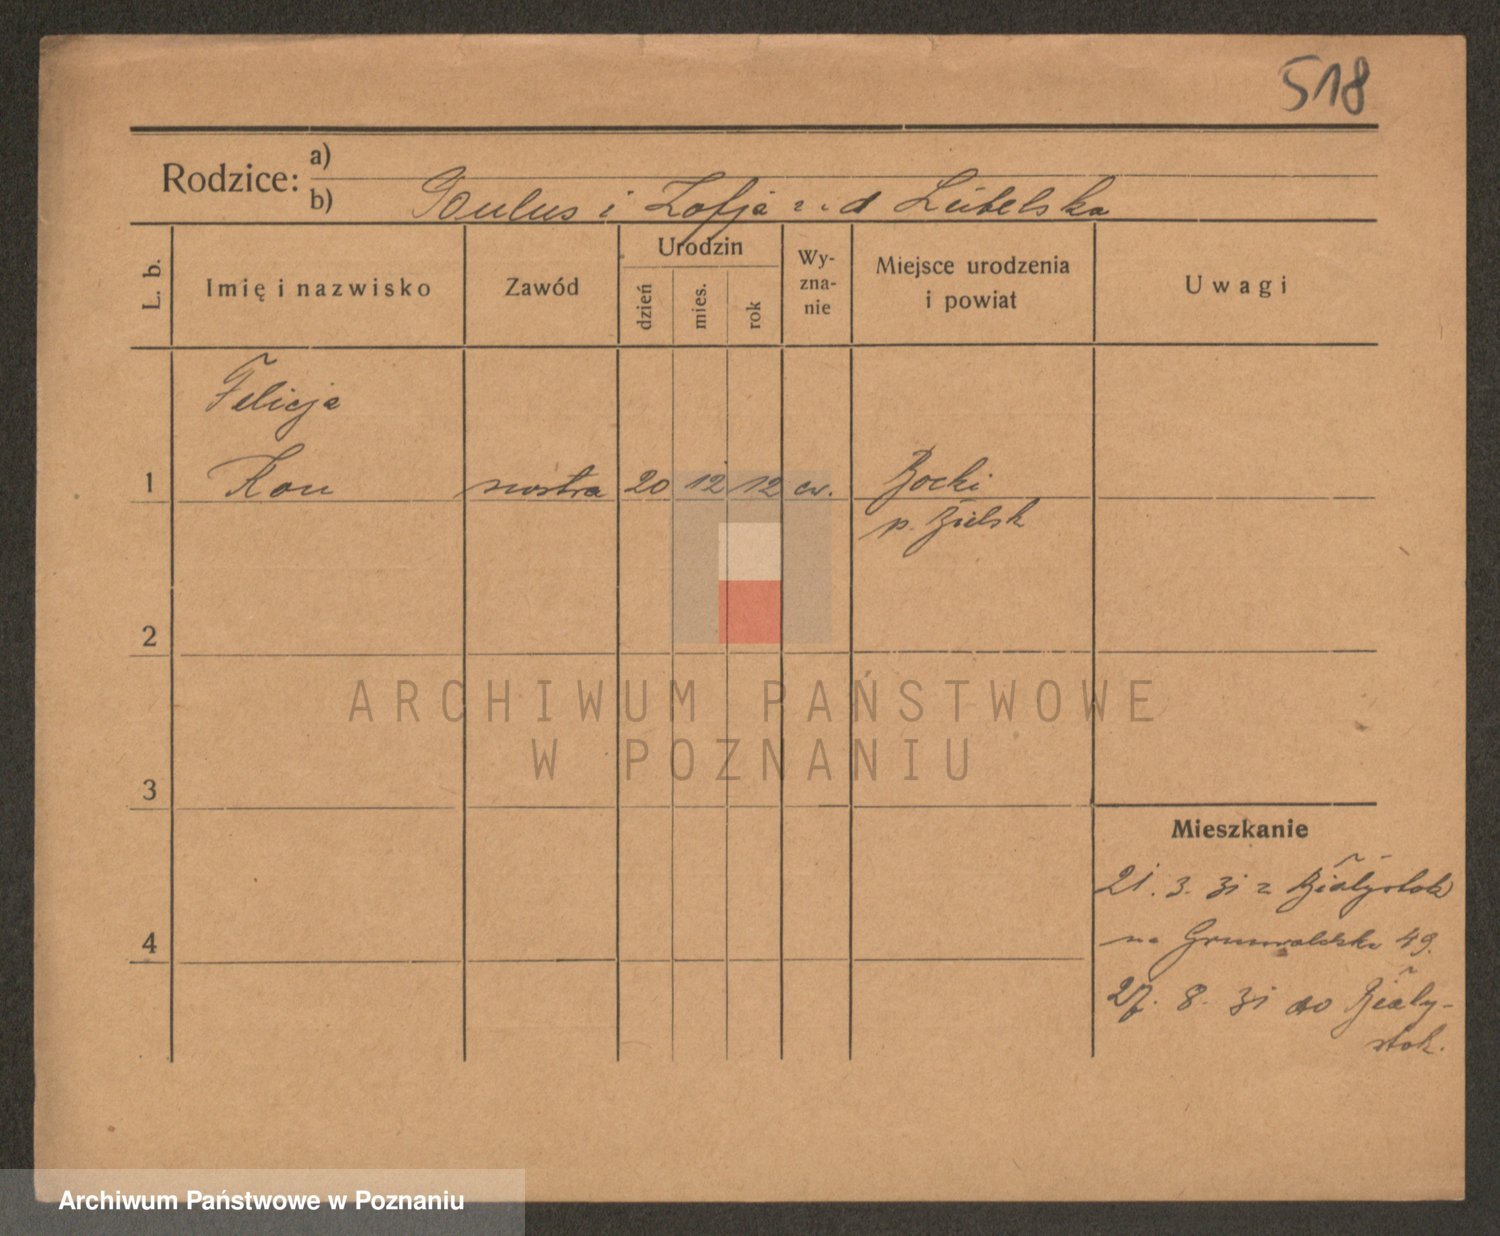 518
Rodzice: a)
b) Paulus i Zofja z d Lubelska
L. b. Imię i nazwisko Zawód Urodzin dzień mies. rok Wy-zna-nie Miejsce urodzenia i powiat Uwagi
Felicja
1 Kon siostra 20 12 12 ew. Bocki
p. Bielsk
2
ARCHIWUM PAŃSTWOWE
W POZNANIU
3
Mieszkanie
21. 3. 31 z Białystok
na Grunwaldzka 49.
4
27. 8. 31 do Biały-
stok.
Archiwum Państwowe w Poznaniu